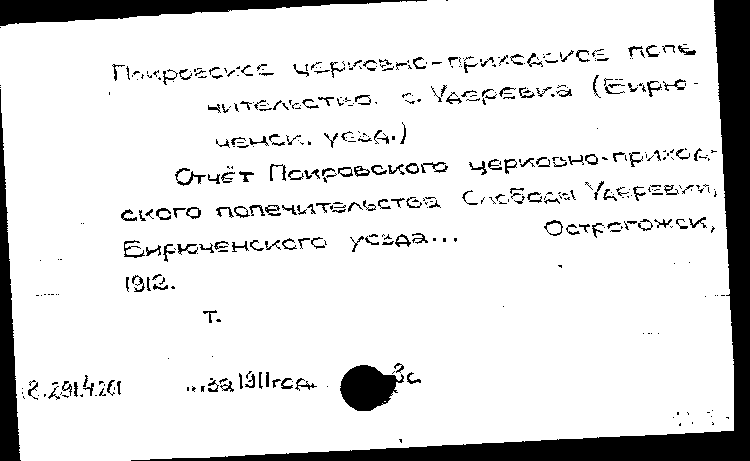 Покровское церковно-приходское попе
чительство. с. Удеревка (Бирю-
ченск. уезд.)
Отчёт Покровского церковно-приход-
ского попечительства Слободы Удеревки,
Бирюченского уезда... Острогожск,
1912.
т.
...за 1911 год.